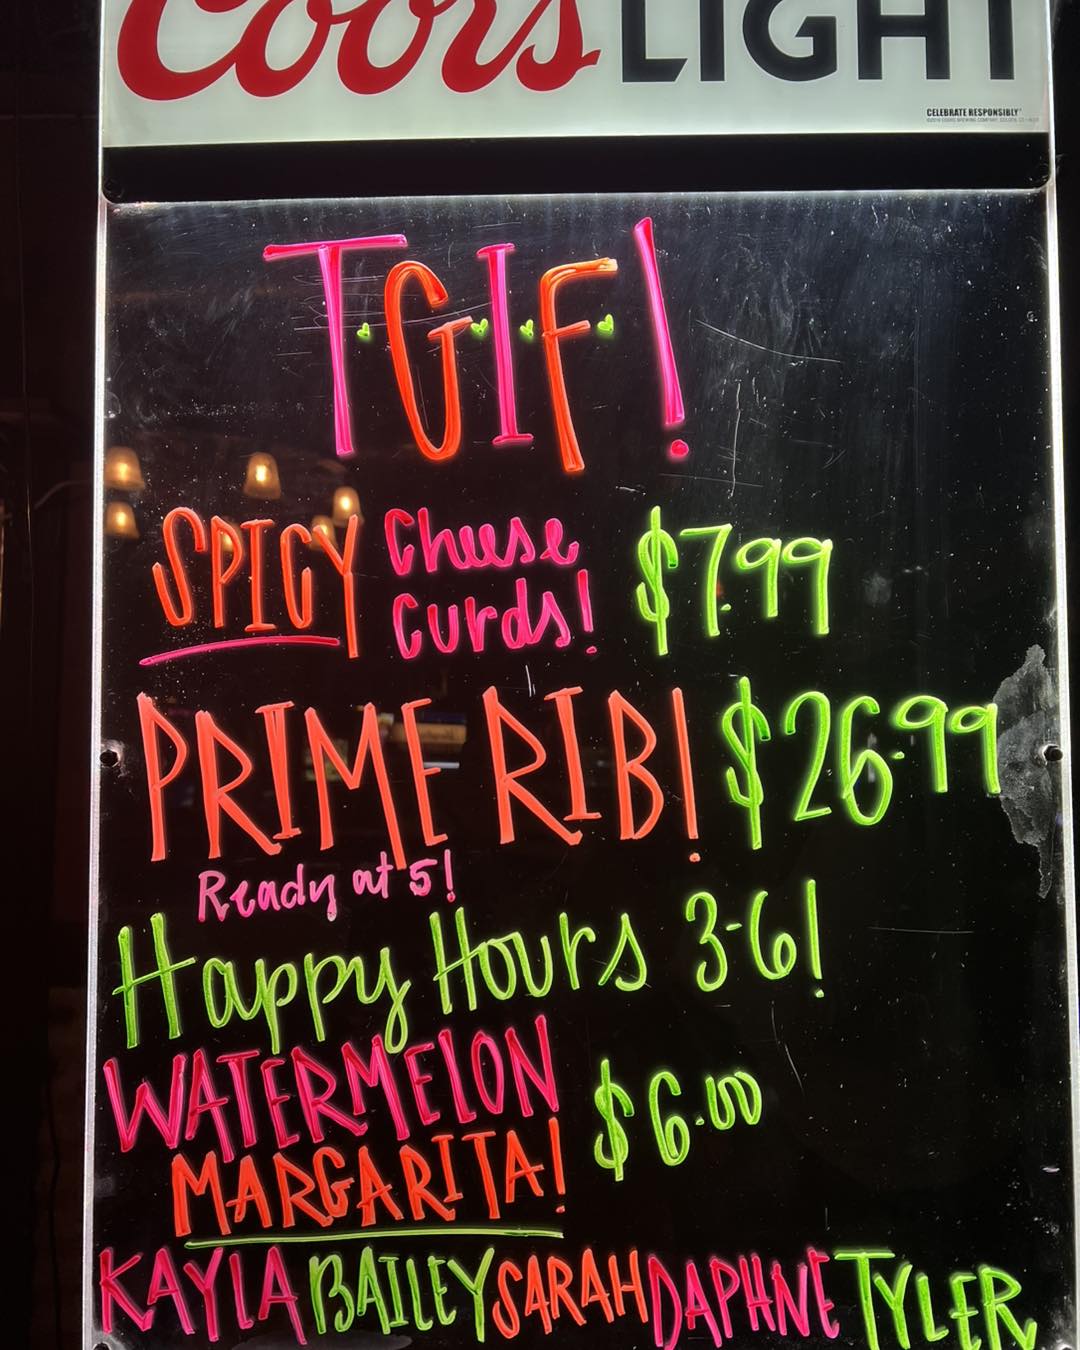 Coors LIGHT
CELEBRATE RESPONSIBLY
T.G.I.F!
SPICY Cheese $7.99
Curds!
PRIME RIB! $26.99
Ready at 5!
Happy Hours 3-6!
WATERMELON $6.00
MARGARITA!
KAYLA BAILEY SARAH DAPHNE TYLER